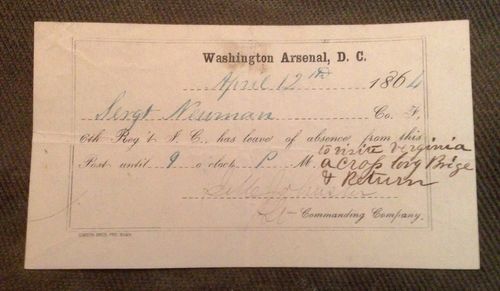 Washington Arsenal, D. C.
April 12th 1864
Sergt Newman Co. F,
6th Reg't V. C., has leave of absence from this
Post until 9 o'clock P M. to visite Virginia
across long Brige
& Return
Lt Commanding Company.